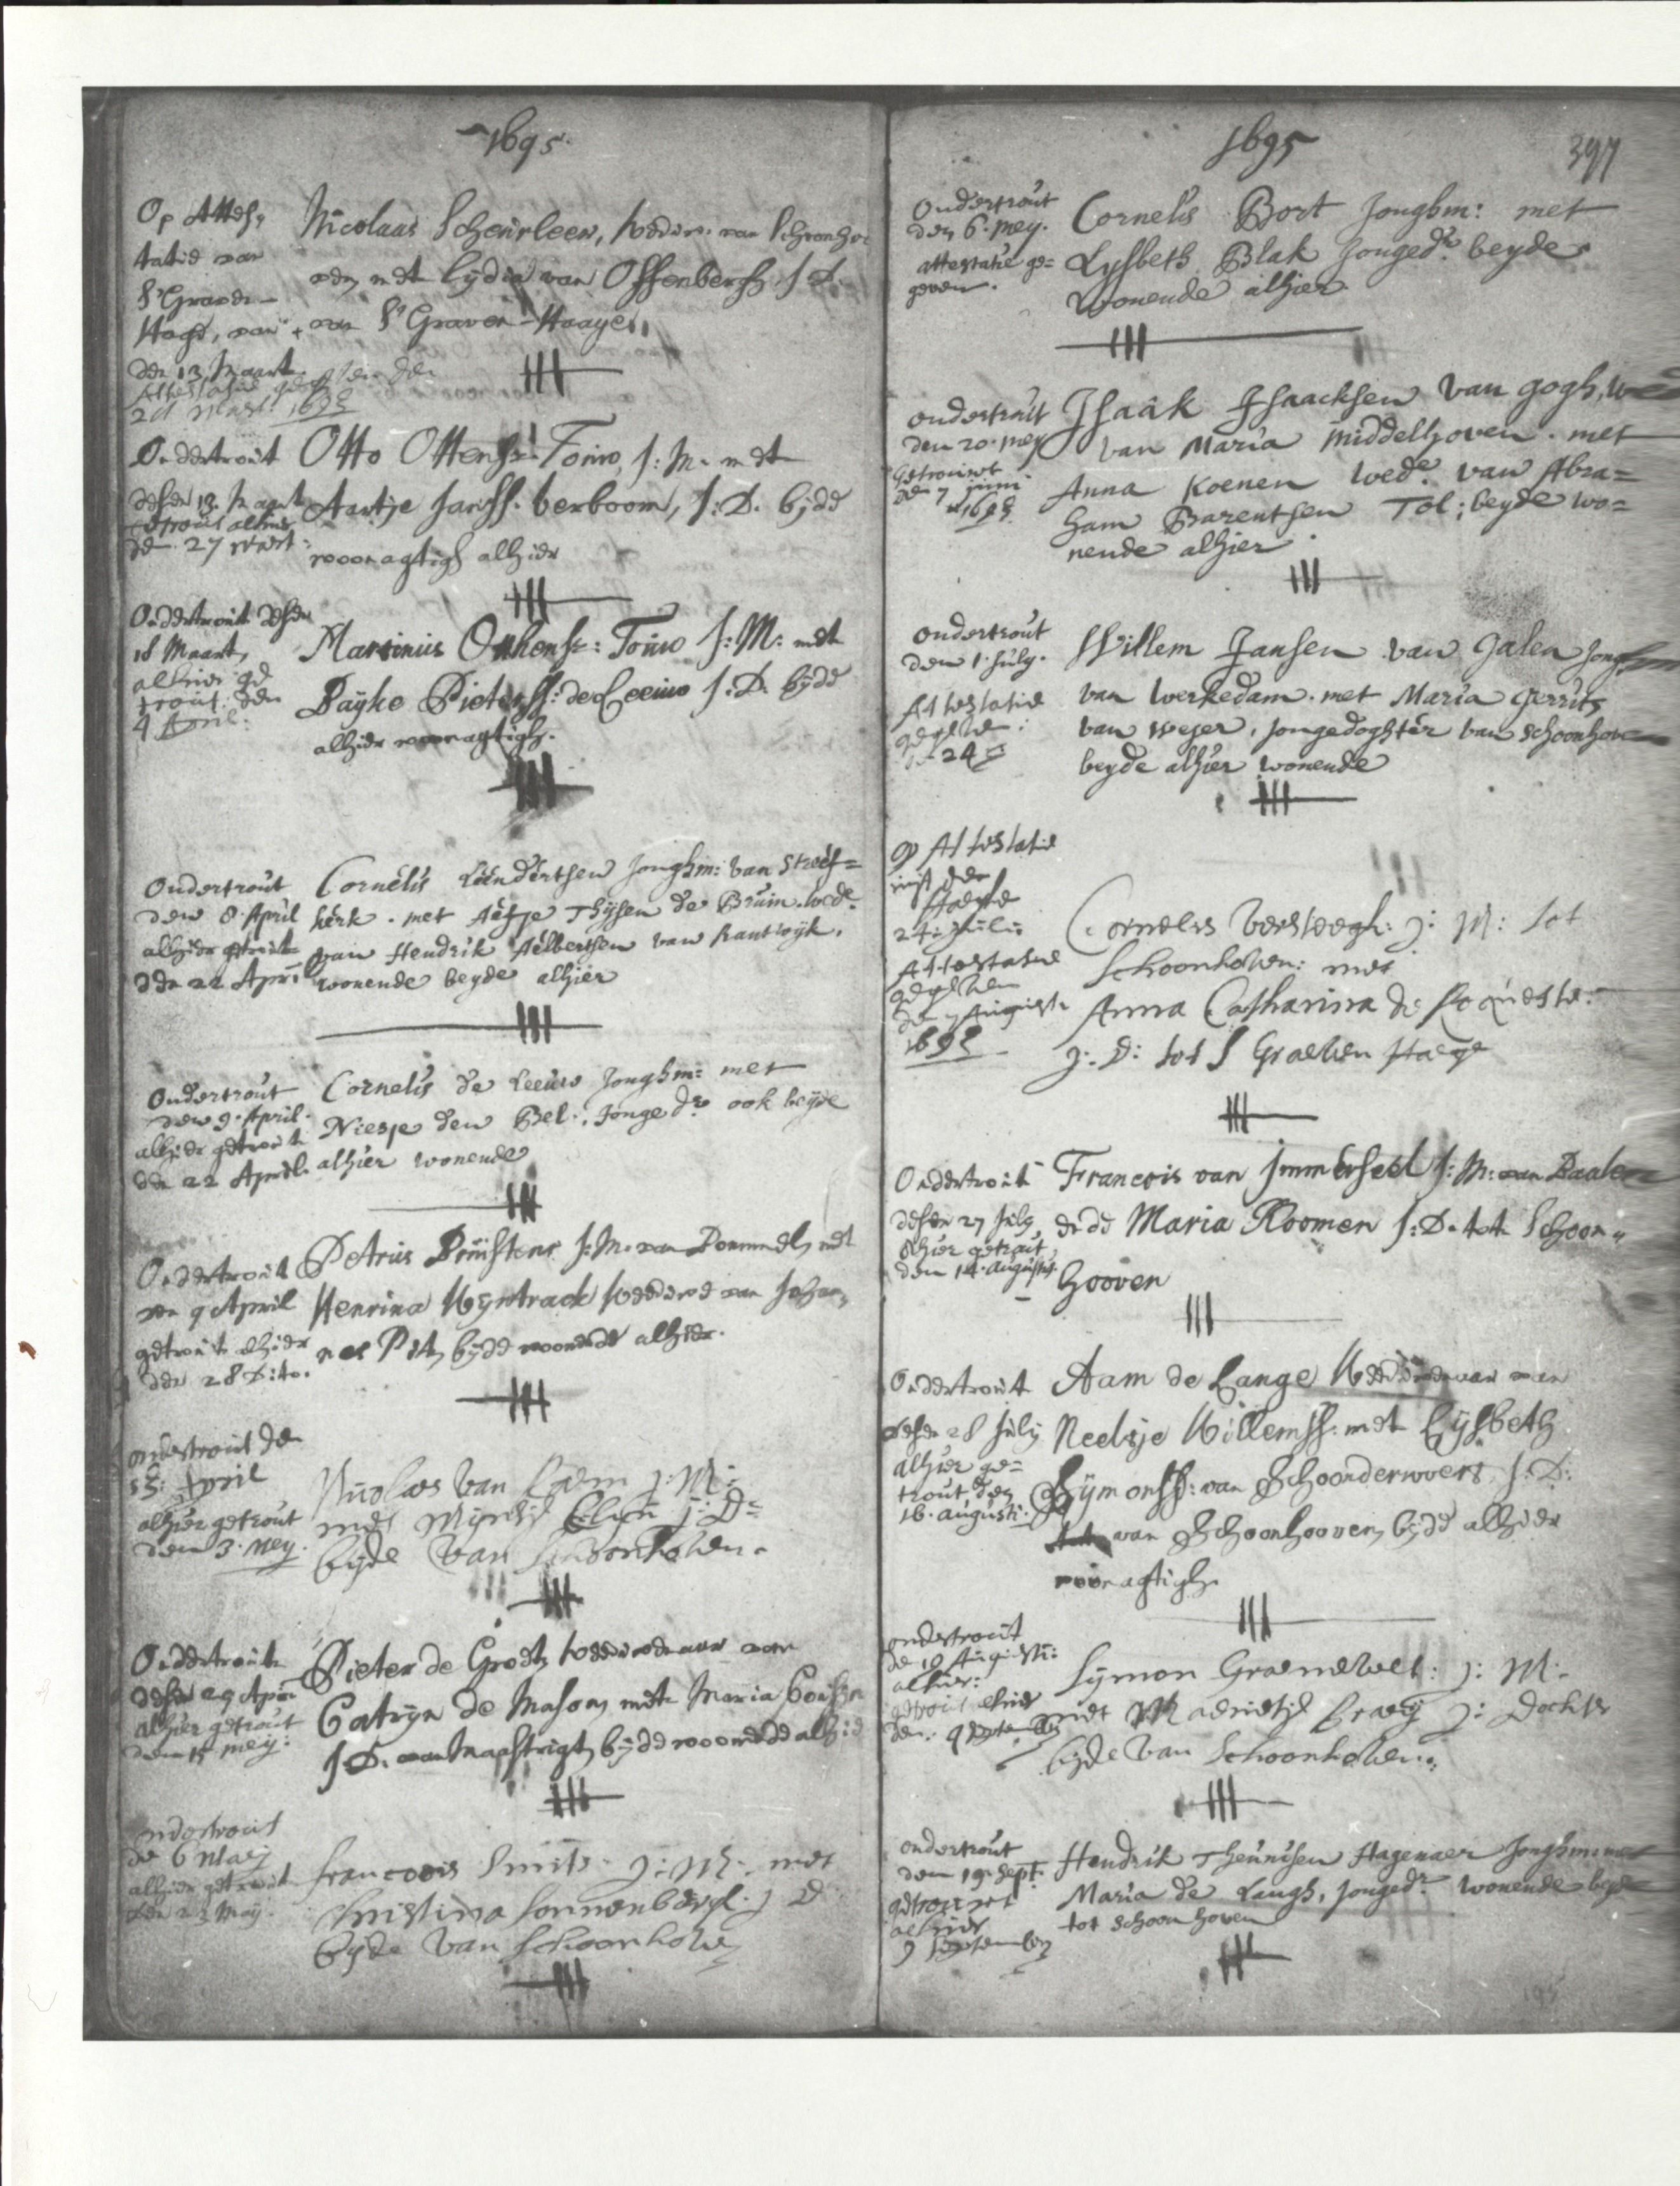 1695.
Op Attes,
tatie van
S'Graven-
Hage, van
den 13 Maart.
Attestatie gegeven den
28 Maart 1695
Nicolaas Scheurleer, Weduwr. van Schoonho
ven met Lydia van Offenbergh J D.
van S' Graven-Haage.
Ondertrout
desen 13. Maart
getrout alhier
den 27 Mart:
Otto Ottensz: Touw, J: M. met
Aartje Jansz. Verboom, J: D. bijde
woonagtigh alhier
Ondertrout desen
18 Maart,
alhier ge
trout den
4 April:
Martinus Onkensz: Touw J: M: met
Payke Pietersz: de Leeuw J: D. bijde
alhier woonagtigh.
Ondertrout
den 8. April
alhier getrout
den 22 April
Cornelis Leendertsen Jonghm: van Streef=
kerk. met Aetje Thysen de Bruin. wede.
van Hendrik Aelbertsen van Rantwyk,
wonende beyde alhier
Ondertrout
den 9. April.
alhier getrout
den 22 April.
Cornelis de Leeuw Jonghm: met
Niesje den Bel., Jonge dr. ook beyde
alhier wonende
Ondertrout
den 9 April
getrout alhier
den 28 Dito.
Petrus Bruystens J. M. van Bommel, met
Henrina Wyntrack Weduwe van Johan,
nes Pit, bijde woonende alhier.
ondertrout de
15: April
alhier getrout
den 3. Mey.
Nicolaes van Loem j: M:
met Myntje Elyn j: D=
bijde van Schoonhoven.
Ondertrout
desen 29 April
alhier getrout
den 15 mey:
Pieter de Groot, Weduwenaar van
Catryn de Mason, met Maria
J D. van Maastrigt, bijde woonende alhie
ondertrout
de 6 Maey
alhier getrout
den 22 May.
francoois Smits. J: M:. met
Christina Sonnenbergh. J D
bijde van Schoonhoven
1695
397
Ondertrout
den 6. mey.
attestatie ge=
geven.
Cornelis Bort Jonghm: met
Lysbeth Blak Jongedr. beyde
wonende alhier.
ondertrout
den 20. mey
getrouwt
den 7 juni
1695
Isaak Isaacksen van gogh, we
van Maria Middelhoven. met
Anna Koenen Wede. van Abra=
ham Barentsen Tol; beyde wo=
nende alhier.
ondertrout
den 1. July.
Attestatie
gegeven:
24
Willem Jansen van Galen Jonghm
van Werkedam. met Maria Gerrits
van Weyer, Jongedoghter van Schoonhove
beyde alhier wonende
op Attestatie
uijt den
Haege
24: Julii
Attestatie
gegeven
de 7 Augusti
1695
Cornelis Versteegh: J: M: tot
Schoonhoven: met
Anna Catharina de
J: D: tot S Graeven Haege
Ondertrout
desen 27 July,
alhier getrout,
den 14. Augustus.
Francois van Immerseel J: M: van Baalen
ende Maria Roomen J: D. tot Schoon,,
hooven
Ondertrout
desen 28 July
alhier ge=
trout, den
16. augusti.
Aam de Lange Weduwenaar van
Neeltje Willemsz. met Lijsbeth
Symonsz: van Schoonderwoert J: D:
van Schoonhooven, bijde alhier
woonagtigh
ondertrout
de 19 Augusti:
alhier:
getrout alhier
den: 4 September
Symon Groenewelt: J: M:
met Maerietje Craeij J: Dochter
bijde van Schoonhoven:
ondertrout
den 19. Sept.
getrouwt
alhier
9 September
Hendrik Theunisen Hagenaer Jonghm: met
Maria de Laugh, Jongedr. wonende beyde
tot Schoonhoven